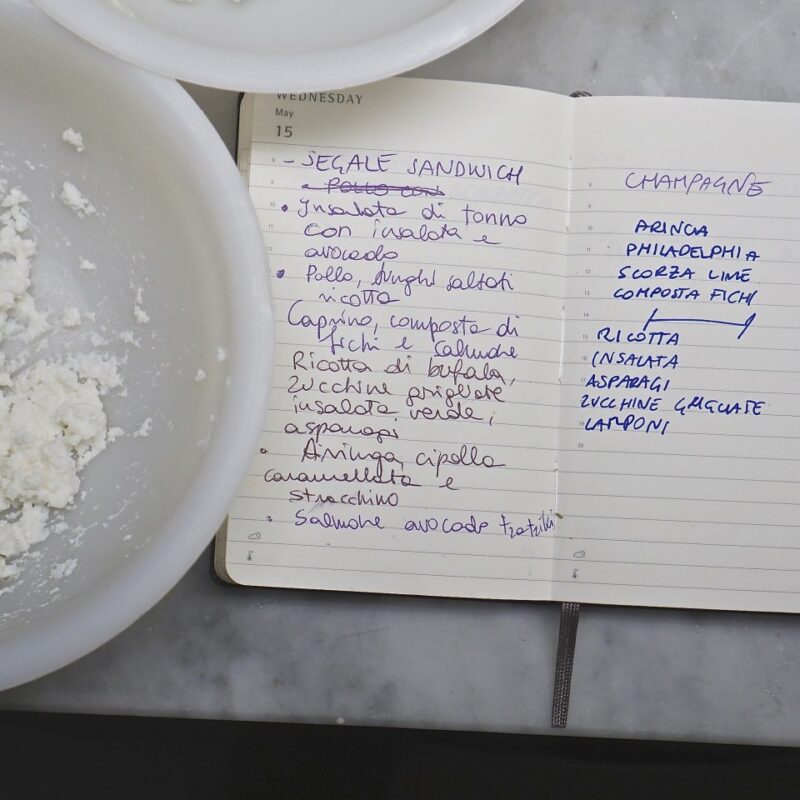 WEDNESDAY
May
15
- SEGALE SANDWICH
• POLLO CON
• Insalata di tonno
con insalata e
avocado
• Pollo, funghi saltati
ricotta
Caprino, composta di
fichi e salmone
Ricotta di bufala,
zucchine grigliate
insalata verde,
asparagi
• Aringa, cipolla
caramellata e
stracchino
• Salmone avocado tzatziki
CHAMPAGNE
ARINGA
PHILADELPHIA
SCORZA LIME
COMPOSTA FICHI
RICOTTA
INSALATA
ASPARAGI
ZUCCHINE GRIGLIATE
LAMPONI